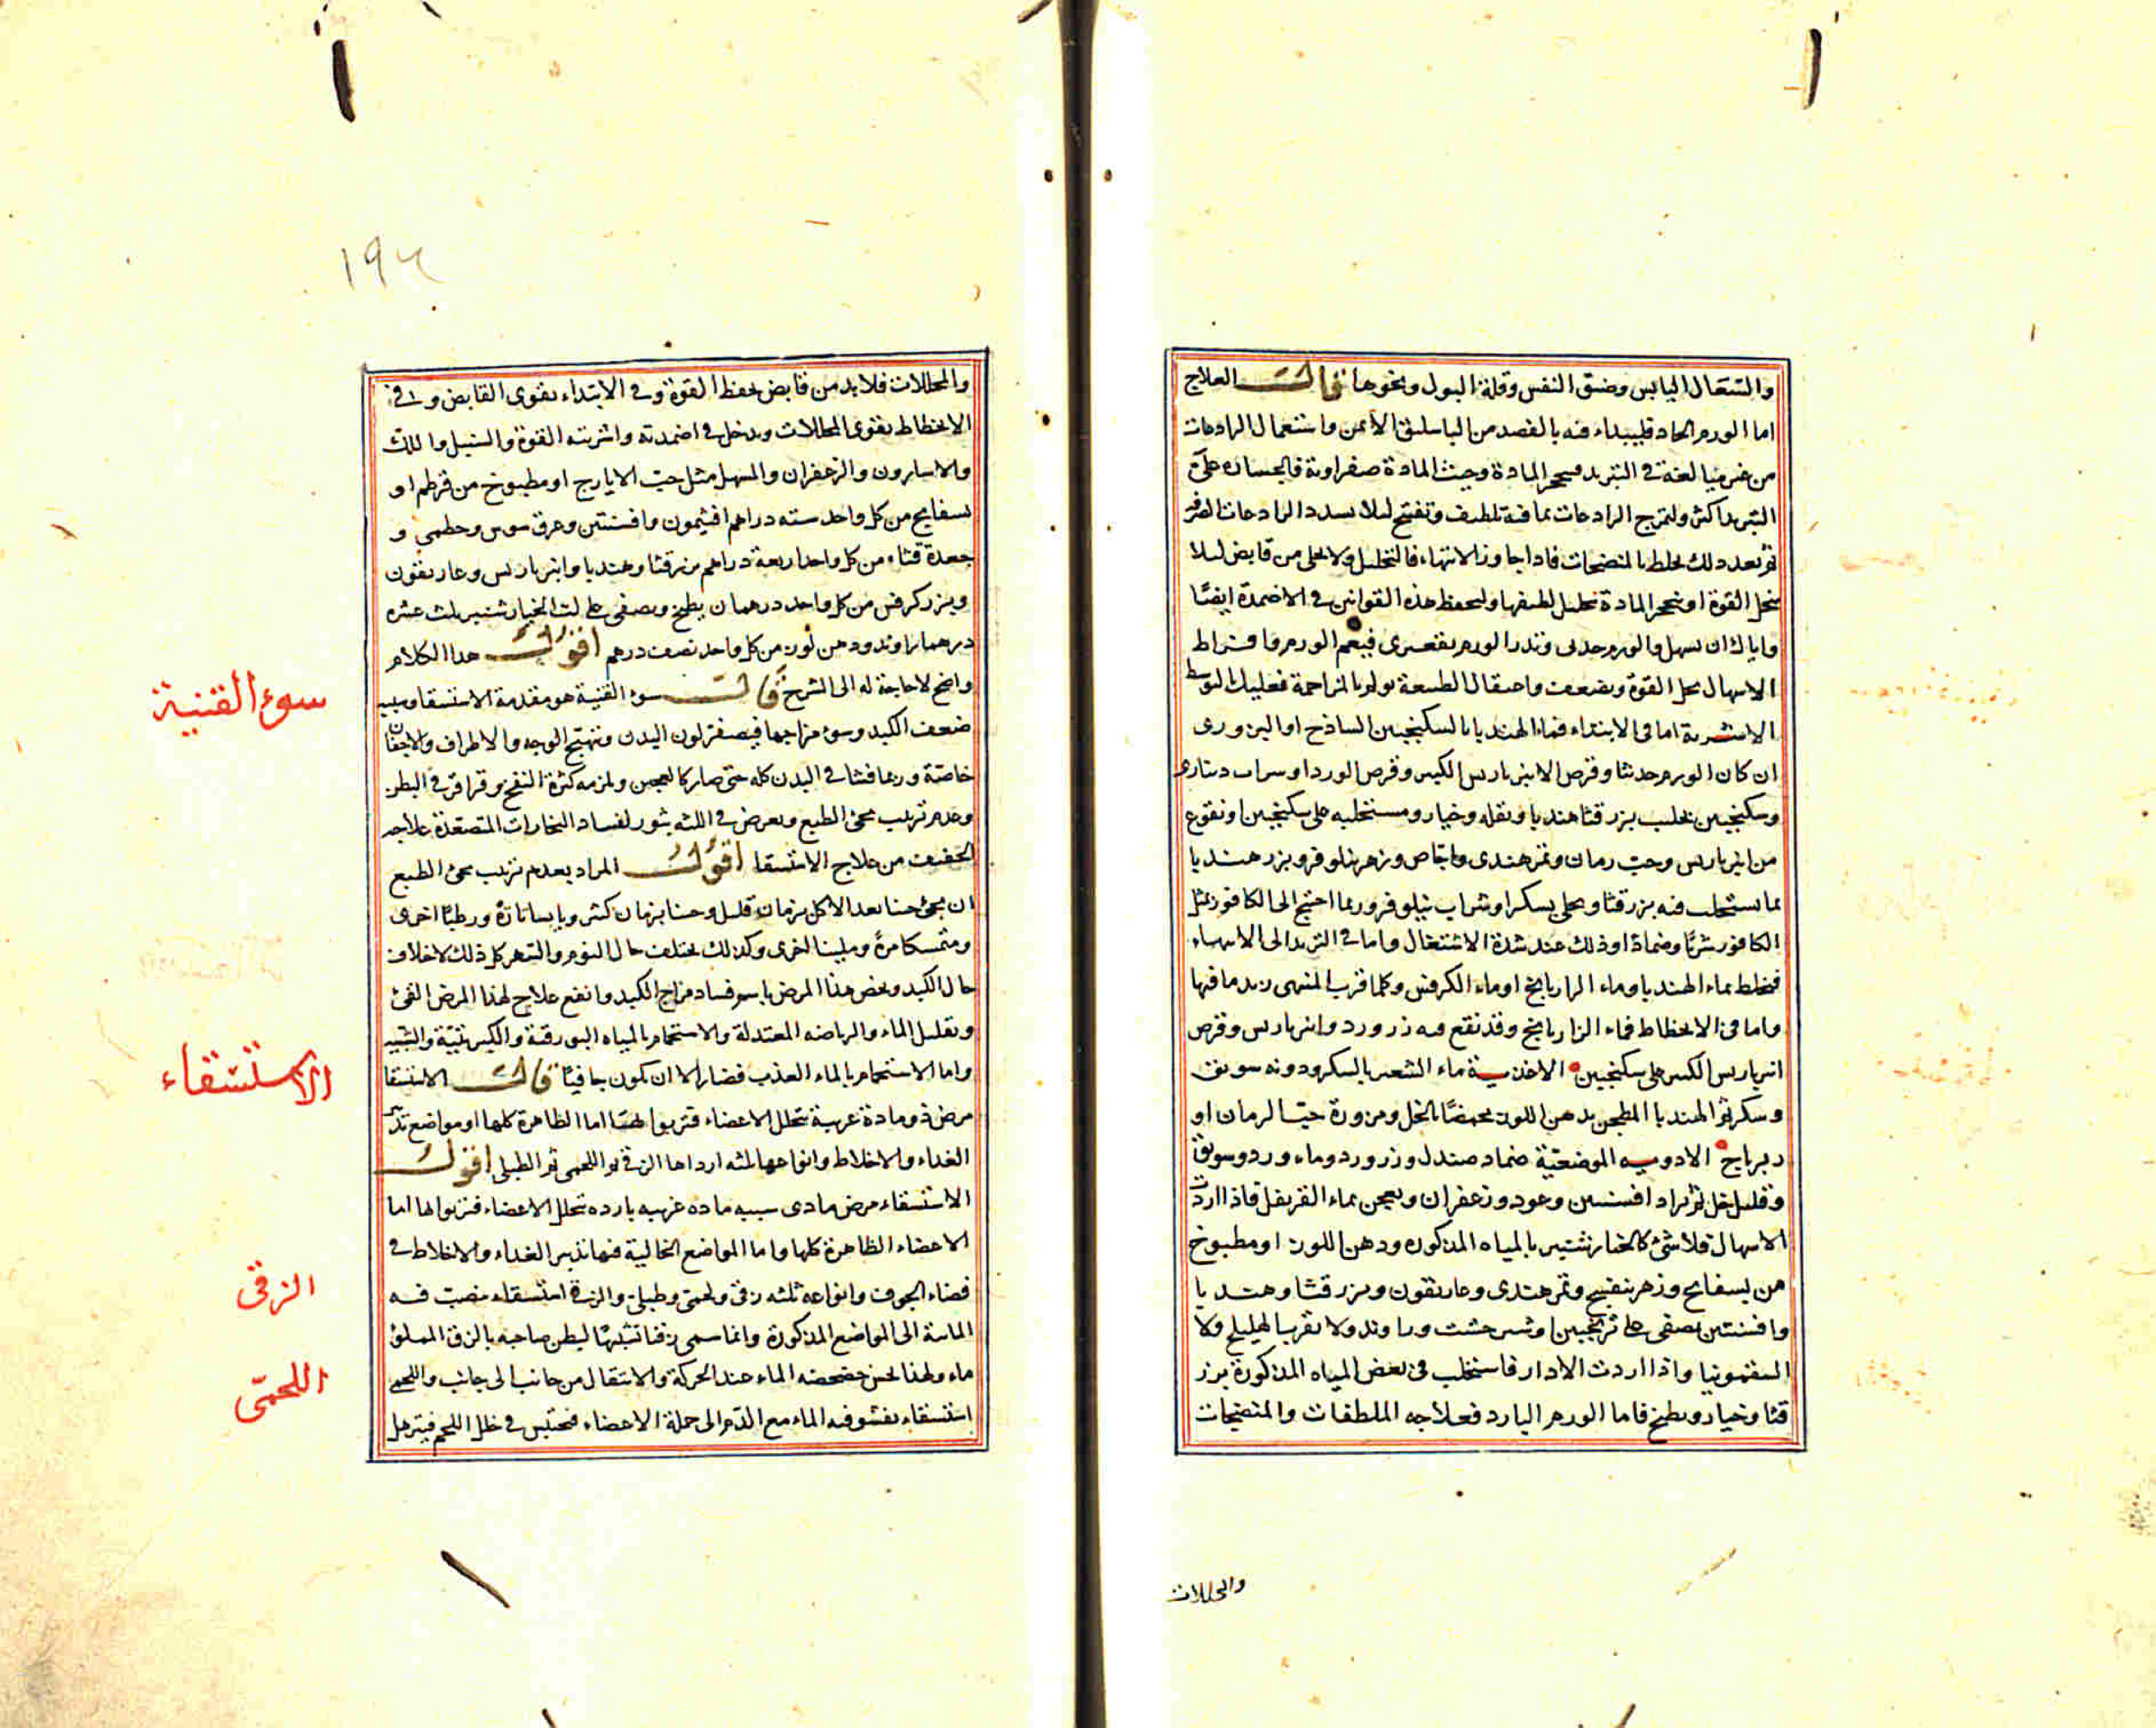 والسعال اليابس وضيق النفس وقلة البول ونحوها قال العلاج
اما الورم الحاد فليبداء فيه بالفصد من الباسليق الايمن واستعمال الرادعات
من غير مبالغة في التبريد فيتحجر المادة وحيث المادة صفراوية فالجسارة على
التبريد اكثر وليمزج الرادعات بما فيه تلطيف وتفتيح لئلا يسدد الرادعات
ثم بعد ذلك يخلط بالمنضجات فاذا جاوز الانتهاء فالتحليل ولا يخلى من قابض لئلا
ينحل القوة او يتحجر المادة بتحليل لطيفها وليحفظ هذه القوانين في الاضمدة ايضا
واياك ان تسهل والورم حدبى وتدر والورم تقعيرى فيعم الورم وافراط
الاسهال يحل القوة ويضعف واعتقال الطبيعة يولم بالمزاحمة فعليك التوسط
الاشربة اما في الابتداء فماء الهندبا بالسكنجبين الساذج او البزورى
ان كان الورم حدبيا وقرص الانبرباريس الكبير وقرص الورد او شراب دينارى
وسكنجبين بحليب بزر قثا هندبا وبقلة وخيار ومستحلبه على سكنجبين او نقوع
من انبرباريس وحب رمان وتمر هندى واجاص وزهر نيلوفر وبزر هندبا
بما يستحلب فيه بزر قثا ويحلى بسكر او شراب نيلوفر وربما احتج الى الكافور بمثل
الكافور شربا وضمادا وذلك عند شدة الاشتعال واما في التزيد الى الانتهاء
فيخلط بماء الهندبا وماء الرازيانج او ماء الكرفس وكلما قرب المنتهى زيد ما فيها
واما في الانحطاط فماء الرازيانج وقد نقع فيه زر ورد وانبرباريس وقرص
انبرباريس الكبير على سكنجبين الاغذية ماء الشعير بالسكر ودونه سويق
وسكر ثم الهندبا المطجن بدهن اللوز محمضا بالخل ومزورة حب الرمان او
زيرباج الادوية الموضعية ضماد صندل وزر ورد وماء ورد وسويق
وقليل خل ثم يزاد افسنتين وعود وزعفران ويعجن بماء القرنفل فاذا اردت
الاسهال فلا شئ كالخيارشنبر بالمياه المذكورة ودهن اللوز او مطبوخ
من بسفايج وزهر بنفسج وتمر هندى وغاريقون وبزر قثا وهندبا
وافسنتين يصفى على ترنجبين او شيرخشت وراوند ولا تقرب الهليلج ولا
السقمونيا واذا اردت الادرار فاستحلب في بعض المياه المذكورة بزر
قثا وخيار وبطيخ فاما الورم البارد فعلاجه الملطفات والمنضجات
والمحللات
١٩٤
والمحللات فلا بد من قابض يحفظ القوة وفي الابتداء يقوى القابض وفي
الانحطاط يقوى المحللات ويدخل في اضمدته واشربته القوة والسنبل واللك
والاسارون والزعفران والمسهل مثل حب الايارج او مطبوخ من قرطم او
بسفايج من كل واحد ستة دراهم افيثمون وافسنتين وعرق سوس وخطمى و
جعدة قثاء من كل واحد اربعة دراهم بزر قثا وهندبا وانبرباريس وغاريقون
وبزر كرفس من كل واحد درهمان يطبخ ويصفى على لب الخيارشنبر ثلث عشرة
درهما راوند ودهن لوز من كل واحد نصف درهم اقول هذا الكلام
واضح لا حاجة له الى الشرح قال سوء القنية هو مقدمة الاستسقا وسببه
ضعف الكبد وسوء مزاجها فيصفر لون البدن ويتهبج الوجه والاطراف والاجفان
خاصة وربما فشا في البدن كله حتى صار كالعجين ويلزمه كثرة النفخ وقراقر في البطن
وعدم ترتيب مجئ الطبع ويعرض في اللثة بثور لفساد البخارات المتصعدة علاجه
الخفيف من علاج الاستسقا اقول المراد بعدم ترتيب مجئ الطبع
ان يجئ حينا بعد الاكل بزمان قليل وحينا بزمان كثير ويابسا تارة ورطبا اخرى
ومتمسكا مرة ولينا اخرى وكذلك يختلف حال النوم والسهر كل ذلك لاختلاف
حال الكبد ويخص هذا المرض باسم فساد مزاج الكبد وانفع علاج لهذا المرض القئ
وتقليل الماء والرياضة المعتدلة والاستحمام بالمياه البورقية والكبريتية والشبية
واما الاستحمام بالماء العذب فضار الا ان يكون جافيا قال الاستسقا
مرض ذو مادة غريبة تتخلل الاعضاء فتربو لها اما الظاهرة كلها او مواضع تدبر
الغذاء والاخلاط وانواعها ثلثة ارداها الزقى ثم اللحمى ثم الطبلى اقول
الاستسقاء مرض مادى سببه مادة غريبة باردة تتخلل الاعضاء فتربو لها اما
الاعضاء الظاهرة كلها واما المواضع الخالية فيها تدبير الغذاء والاخلاط في
فضاء الجوف وانواعه ثلثه زقى ولحمى وطبلى والزقى استسقاء ينصب فيه
المائية الى المواضع المذكورة وانما سمى زقيا تشبيها لبطن صاحبه بالزق المملو
ماء ولهذا يحس خضخضه الماء عند الحركة والانتقال من جانب الى جانب واللحمى
استسقاء يفشو فيه الماء مع الدم الى جملة الاعضاء فيحتبس في خلل اللحم فيترهل
سوء القنية
الاستسقاء
الزقى
اللحمّى